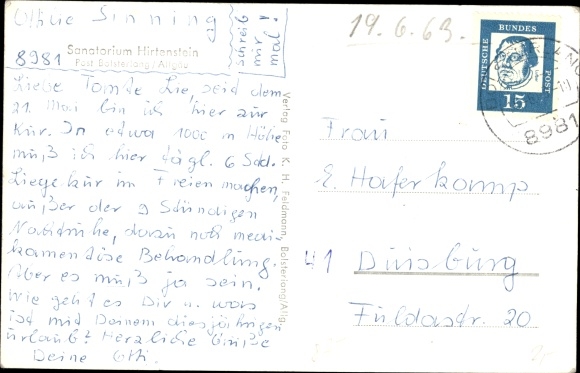 Sinning
schreib
mir
mal!
8981 Sanatorium Hirtenstein
Post Bolsterlang/Allgäu
Liebe Tante Lie, seid dem
21. Mai bin ich hier zur
Kur. In etwa 1000 m Höhe
muß ich hier tägl. 6 Std.
Liegekur im Freien machen,
außer der 9 Stündigen
Nachtruhe, dazu noch medi-
kamentöse Behandlung.
Aber es muß ja sein.
Wie geht es Dir u. was
ist mit Deinem diesjährigen
Urlaub? Herzliche Grüße
Deine Otti.
Verlag Foto K. H. Feldmann, Bolsterlang/Allg.
19. 6. 63.
DEUTSCHE BUNDES POST
15
8981
Frau
E. Haferkamp
41 Duisburg
Fuldastr. 20